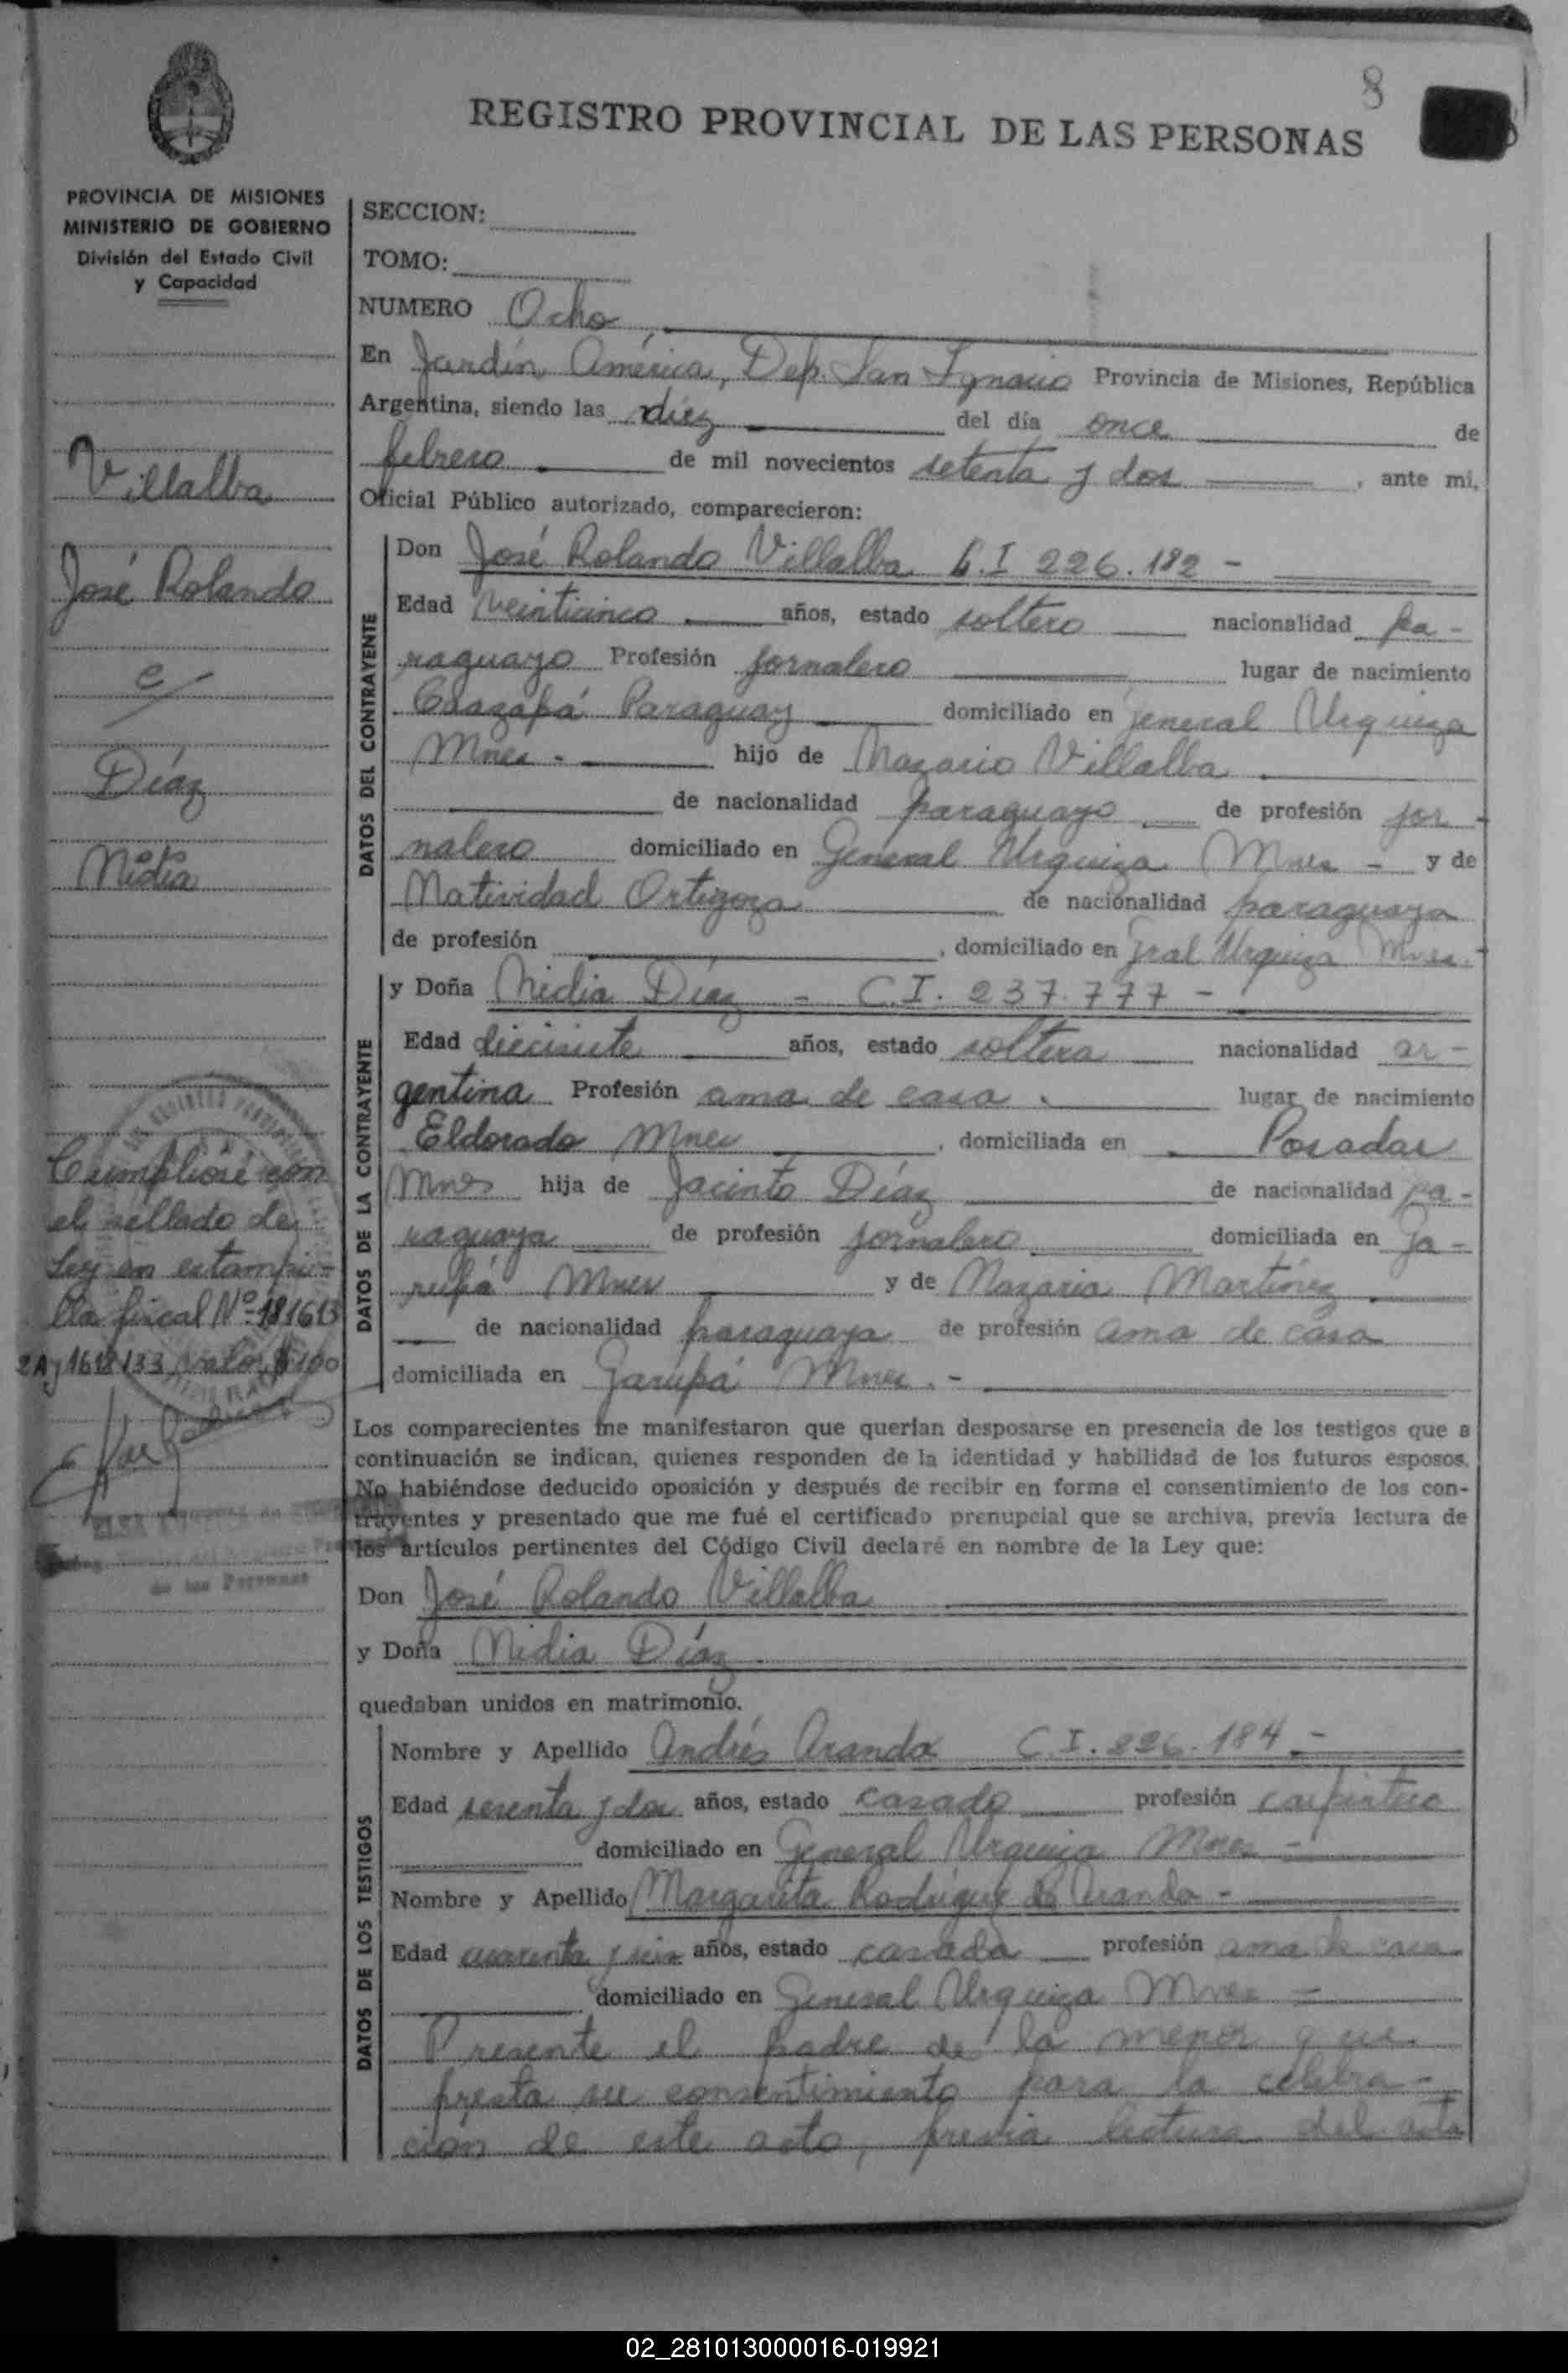 8
REGISTRO PROVINCIAL DE LAS PERSONAS
PROVINCIA DE MISIONES
MINISTERIO DE GOBIERNO
División del Estado Civil
y Capacidad
Villalba
José Rolando
c/
Díaz
Nidia
Cumpliose con
el sellado de
Ley en estampi-
lla fiscal Nº 181613
valor $100
de las Personas
SECCION:
TOMO:
NUMERO Ocho
En Jardín América, Dep. San Ignacio Provincia de Misiones, República
Argentina, siendo las diez del día once de
febrero de mil novecientos setenta y dos, ante mi,
Oficial Público autorizado, comparecieron:
DATOS DEL CONTRAYENTE
Don José Rolando Villalba C.I 226.182 -
Edad veinticinco años, estado soltero nacionalidad pa-
raguayo Profesión jornalero lugar de nacimiento
Caazapá Paraguay domiciliado en General Urquiza
Mnes - hijo de Nazario Villalba
de nacionalidad paraguayo de profesión jor-
nalero domiciliado en General Urquiza Mnes - y de
Natividad Ortigoza de nacionalidad paraguaya
de profesión , domiciliado en Gral Urquiza Mnes.-
DATOS DE LA CONTRAYENTE
y Doña Nidia Díaz - C.I. 237.777 -
Edad diecisiete años, estado soltera nacionalidad ar-
gentina Profesión ama de casa . lugar de nacimiento
Eldorado Mnes , domiciliada en Posadas
Mnes hija de Jacinto Díaz de nacionalidad pa-
raguaya de profesión jornalero domiciliada en Ga-
rupá Mnes y de Nazaria Martínez
de nacionalidad paraguaya de profesión ama de casa
domiciliada en Garupá Mnes.-
Los comparecientes me manifestaron que querían desposarse en presencia de los testigos que a
continuación se indican, quienes responden de la identidad y habilidad de los futuros esposos.
No habiéndose deducido oposición y después de recibir en forma el consentimiento de los con-
trayentes y presentado que me fué el certificado prenupcial que se archiva, previa lectura de
los artículos pertinentes del Código Civil declaré en nombre de la Ley que:
Don José Rolando Villalba
y Doña Nidia Díaz
quedaban unidos en matrimonio.
DATOS DE LOS TESTIGOS
Nombre y Apellido Andrés Aranda C.I. 226.184.-
Edad sesenta y dos años, estado casado profesión carpintero
domiciliado en General Urquiza Mnes -
Nombre y Apellido Margarita Rodriguez de Aranda -
Edad cuarenta y seis años, estado casada profesión ama de casa
domiciliado en General Urquiza Mnes -
Presente el padre de la menor que
presta su consentimiento para la celebra-
cion de este acto, previa lectura del acta
02_281013000016-019921